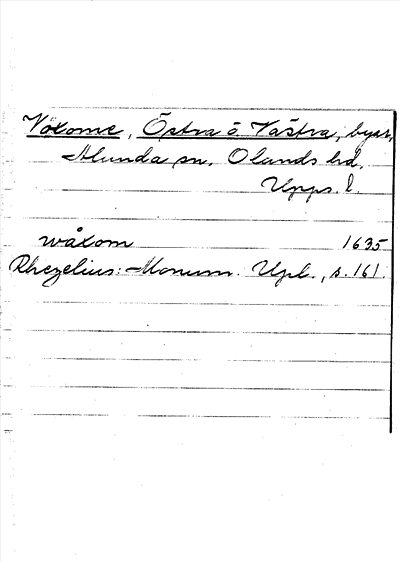 Växome, Östra o. Västra, byar,
Alunda sn, Olands hd,
Upps. l.
wåxom 1635
Rhezelius: Monum. Upl., s. 161.